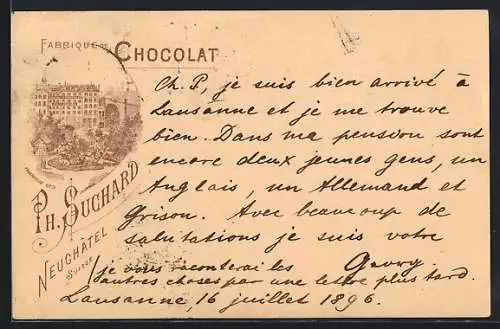 FABRIQUE DE CHOCOLAT
PH. SUCHARD
NEUCHÂTEL
Suisse
Ch. P, je suis bien arrivé à
Lausanne et je me trouve
bien. Dans ma pension sont
encore deux jeunes gens, un
Anglais, un Allemand et
Grison. Avec beaucoup de
salutations je suis votre
Georg
je vous raconterai les
autres choses par une lettre plus tard.
Lausanne, 16 juillet 1896.